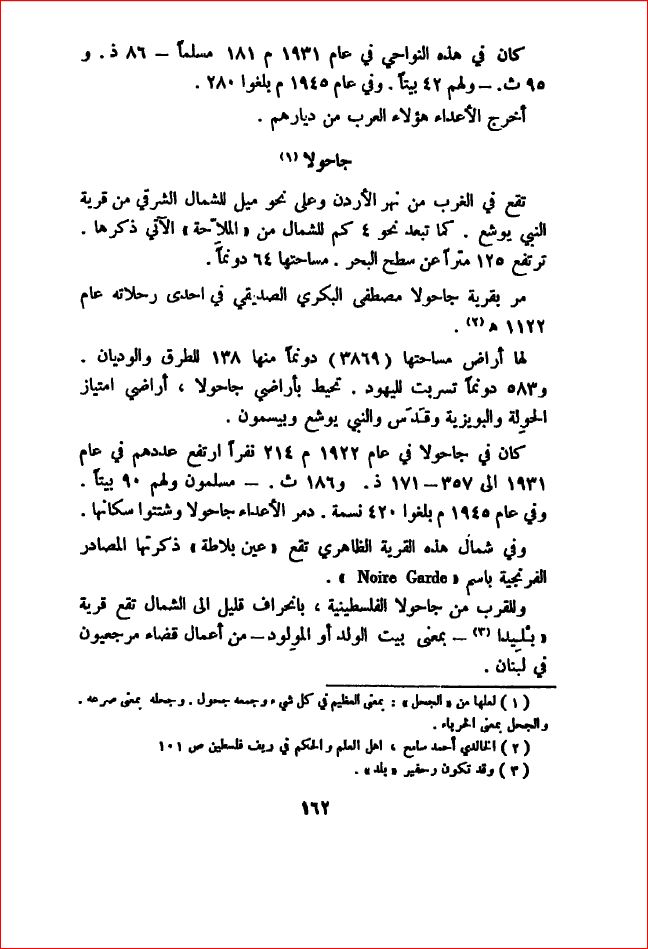 كان في هذه النواحي في عام ١٩٣١ م ١٨١ مسلماً ــ ٨٦ ذ . و
٩٥ ث . ــ ولهم ٤٢ بيتاً . وفي عام ١٩٤٥ م بلغوا ٢٨٠ .
أخرج الأعداء هؤلاء العرب من ديارهم .
جاحولا (١)
تقع في الغرب من نهر الأردن وعلى نحو ميل للشمال الشرقي من قرية
النبي يوشع . كما تبعد نحو ٤ كم للشمال من « الملاّحة » الآتي ذكرها .
ترتفع ١٢٥ متراً عن سطح البحر . مساحتها ٦٤ دونماً .
مر بقرية جاحولا مصطفى البكري الصديقي في احدى رحلاته عام
١١٢٢ ه (٢) .
لها أراض مساحتها ( ٣٨٦٩ ) دونماً منها ١٣٨ للطرق والوديان .
و٥٨٣ دونماً تسربت لليهود . تحيط بأراضي جاحولا ، أراضي امتياز
الحولة والبويزية وقَدَس والنبي يوشع وبيسمون .
كان في جاحولا في عام ١٩٢٢ م ٢١٤ نفراً ارتفع عددهم في عام
١٩٣١ الى ٣٥٧ ــ ١٧١ ذ . و١٨٦ ث . ــ مسلمون ولهم ٩٠ بيتاً .
وفي عام ١٩٤٥ م بلغوا ٤٢٠ نسمة . دمر الأعداء جاحولا وشتتوا سكانها .
وفي شمال هذه القرية الظاهري تقع « عين بلاطة » ذكرتها المصادر
الفرنجية باسم « Noire Garde » .
وللقرب من جاحولا الفلسطينية ، بانحراف قليل الى الشمال تقع قرية
« بْلِيدا (٣) ــ بمعنى بيت الولد أو المولود ــ من أعمال قضاء مرجعيون
في لبنان .
( ١ ) لعلها من « الجحل » : بمعنى العظيم في كل شيء وجمعه جحول . وجحله بمعنى صرعه .
والجحل بمعنى الحرباء .
( ٢ ) الخالدي أحمد سامح ، اهل العلم والحكم في ريف فلسطين ص ١٠١
( ٣ ) وقد تكون تحفير « بلد » .
١٦٢